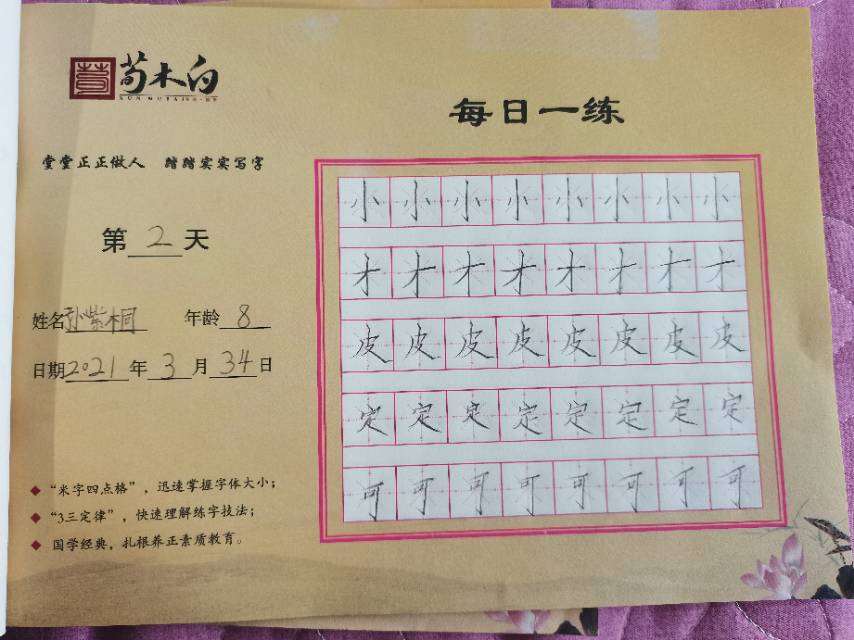 荀木白
每日一练
堂堂正正做人 踏踏实实写字
第2天
姓名孙紫桐 年龄8
日期2021年3月34日
“米字四点格”，迅速掌握字体大小；
“3三定律”，快速理解练字技法；
国学经典，扎根养正素质教育。
小小小小小小小小
才才才才才才才才
皮皮皮皮皮皮皮皮
定定定定定定定定
可可可可可可可可